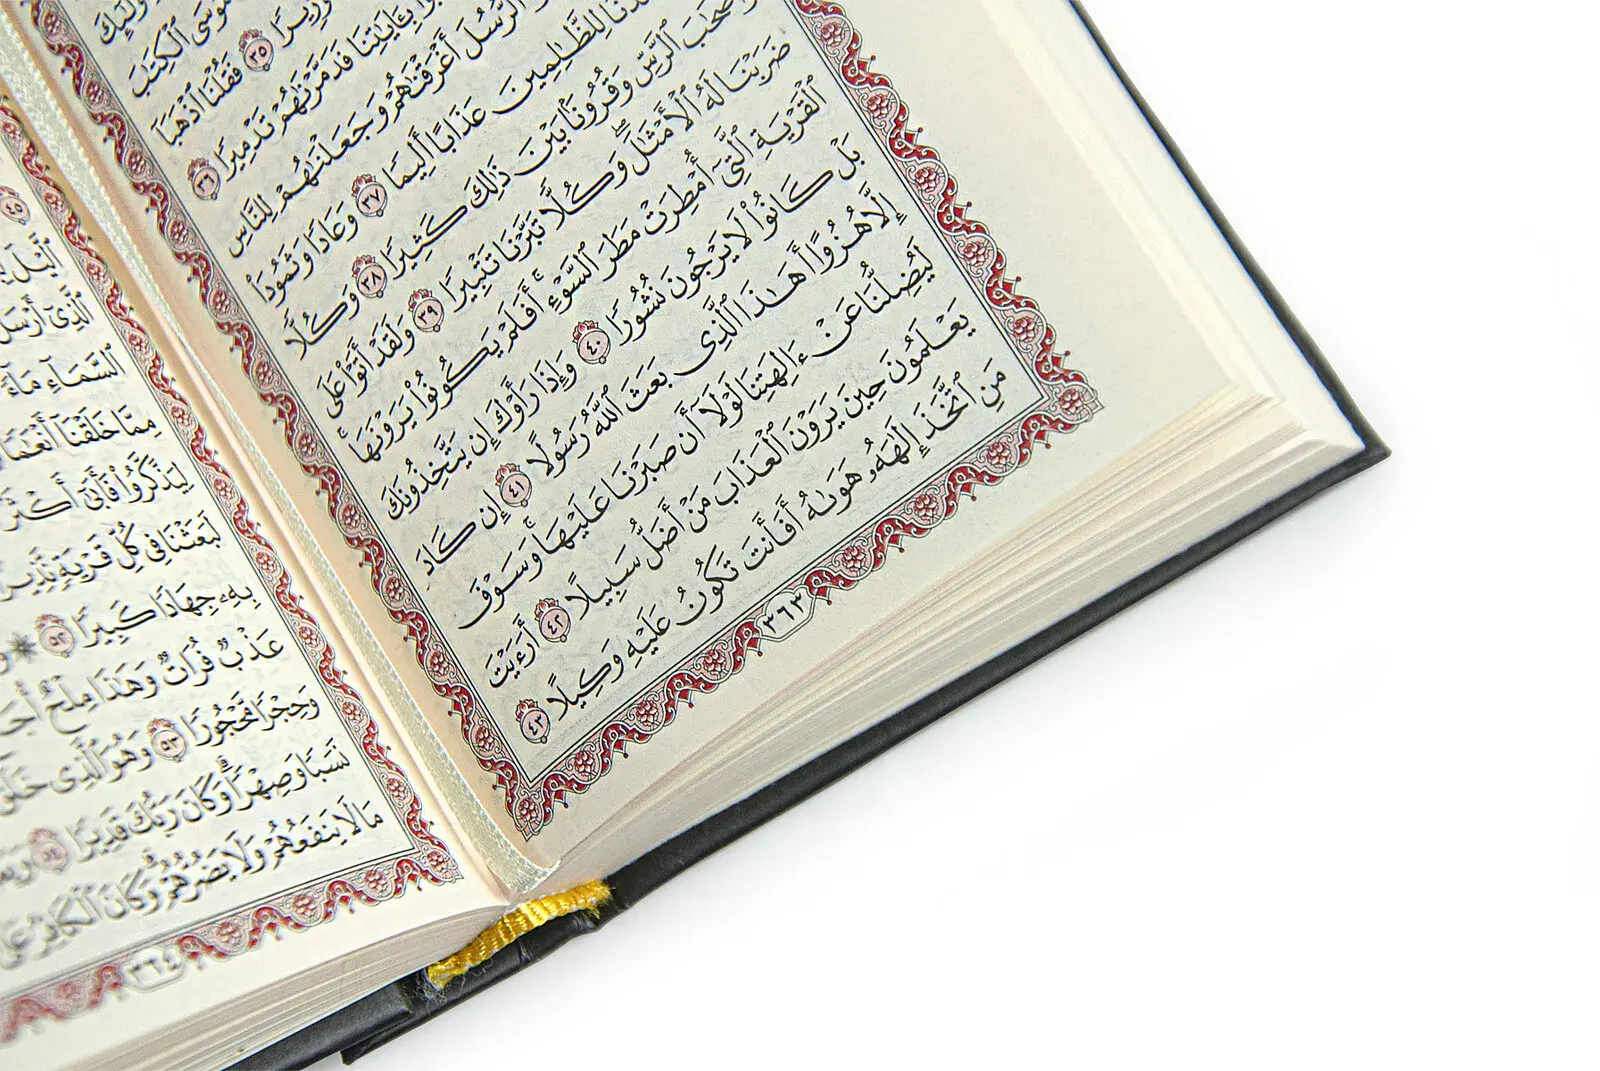 مُوسَى ٱلْكِتَٰبَ
وَزِيرًا ٣٥ فَقُلْنَا ٱذْهَبَآ
بِـَٔايَٰتِنَا فَدَمَّرْنَٰهُمْ تَدْمِيرًا ٣٦
ٱلرُّسُلَ أَغْرَقْنَٰهُمْ وَجَعَلْنَٰهُمْ لِلنَّاسِ
لِلظَّٰلِمِينَ عَذَابًا أَلِيمًا ٣٧ وَعَادًا وَثَمُودَا۟
وَأَصْحَٰبَ ٱلرَّسِّ وَقُرُونًۢا بَيْنَ ذَٰلِكَ كَثِيرًا ٣٨ وَكُلًّا
ضَرَبْنَا لَهُ ٱلْأَمْثَٰلَ ۖ وَكُلًّا تَبَّرْنَا تَتْبِيرًا ٣٩ وَلَقَدْ أَتَوْا۟ عَلَى
ٱلْقَرْيَةِ ٱلَّتِىٓ أُمْطِرَتْ مَطَرَ ٱلسَّوْءِ ۚ أَفَلَمْ يَكُونُوا۟ يَرَوْنَهَا ۚ
بَلْ كَانُوا۟ لَا يَرْجُونَ نُشُورًا ٤٠ وَإِذَا رَأَوْكَ إِن يَتَّخِذُونَكَ
إِلَّا هُزُوًا أَهَٰذَا ٱلَّذِى بَعَثَ ٱللَّهُ رَسُولًا ٤١ إِن كَادَ
لَيُضِلُّنَا عَنْ ءَالِهَتِنَا لَوْلَآ أَن صَبَرْنَا عَلَيْهَا ۚ وَسَوْفَ
يَعْلَمُونَ حِينَ يَرَوْنَ ٱلْعَذَابَ مَنْ أَضَلُّ سَبِيلًا ٤٢ أَرَءَيْتَ
مَنِ ٱتَّخَذَ إِلَٰهَهُۥ هَوَىٰهُ أَفَأَنتَ تَكُونُ عَلَيْهِ وَكِيلًا ٤٣
٣٦٣
٤٥
ٱلَّيْلَ
ٱلَّذِىٓ أَرْسَلَ
ٱلسَّمَآءِ مَآءً
مِمَّا خَلَقْنَآ
لِيَذَّكَّرُوا۟ فَأَبَىٰٓ
لَبَعَثْنَا فِى كُلِّ قَرْيَةٍ نَّذِيرًا
بِهِۦ جِهَادًا كَبِيرًا ٥٢ ۞
عَذْبٌ فُرَاتٌ وَهَٰذَا مِلْحٌ
وَحِجْرًا مَّحْجُورًا ٥٣ وَهُوَ ٱلَّذِى خَلَقَ
نَسَبًا وَصِهْرًا ۗ وَكَانَ رَبُّكَ قَدِيرًا ٥٤
مَا لَا يَنفَعُهُمْ وَلَا يَضُرُّهُمْ ۗ وَكَانَ ٱلْكَافِرُ عَلَىٰ
٣٦٤